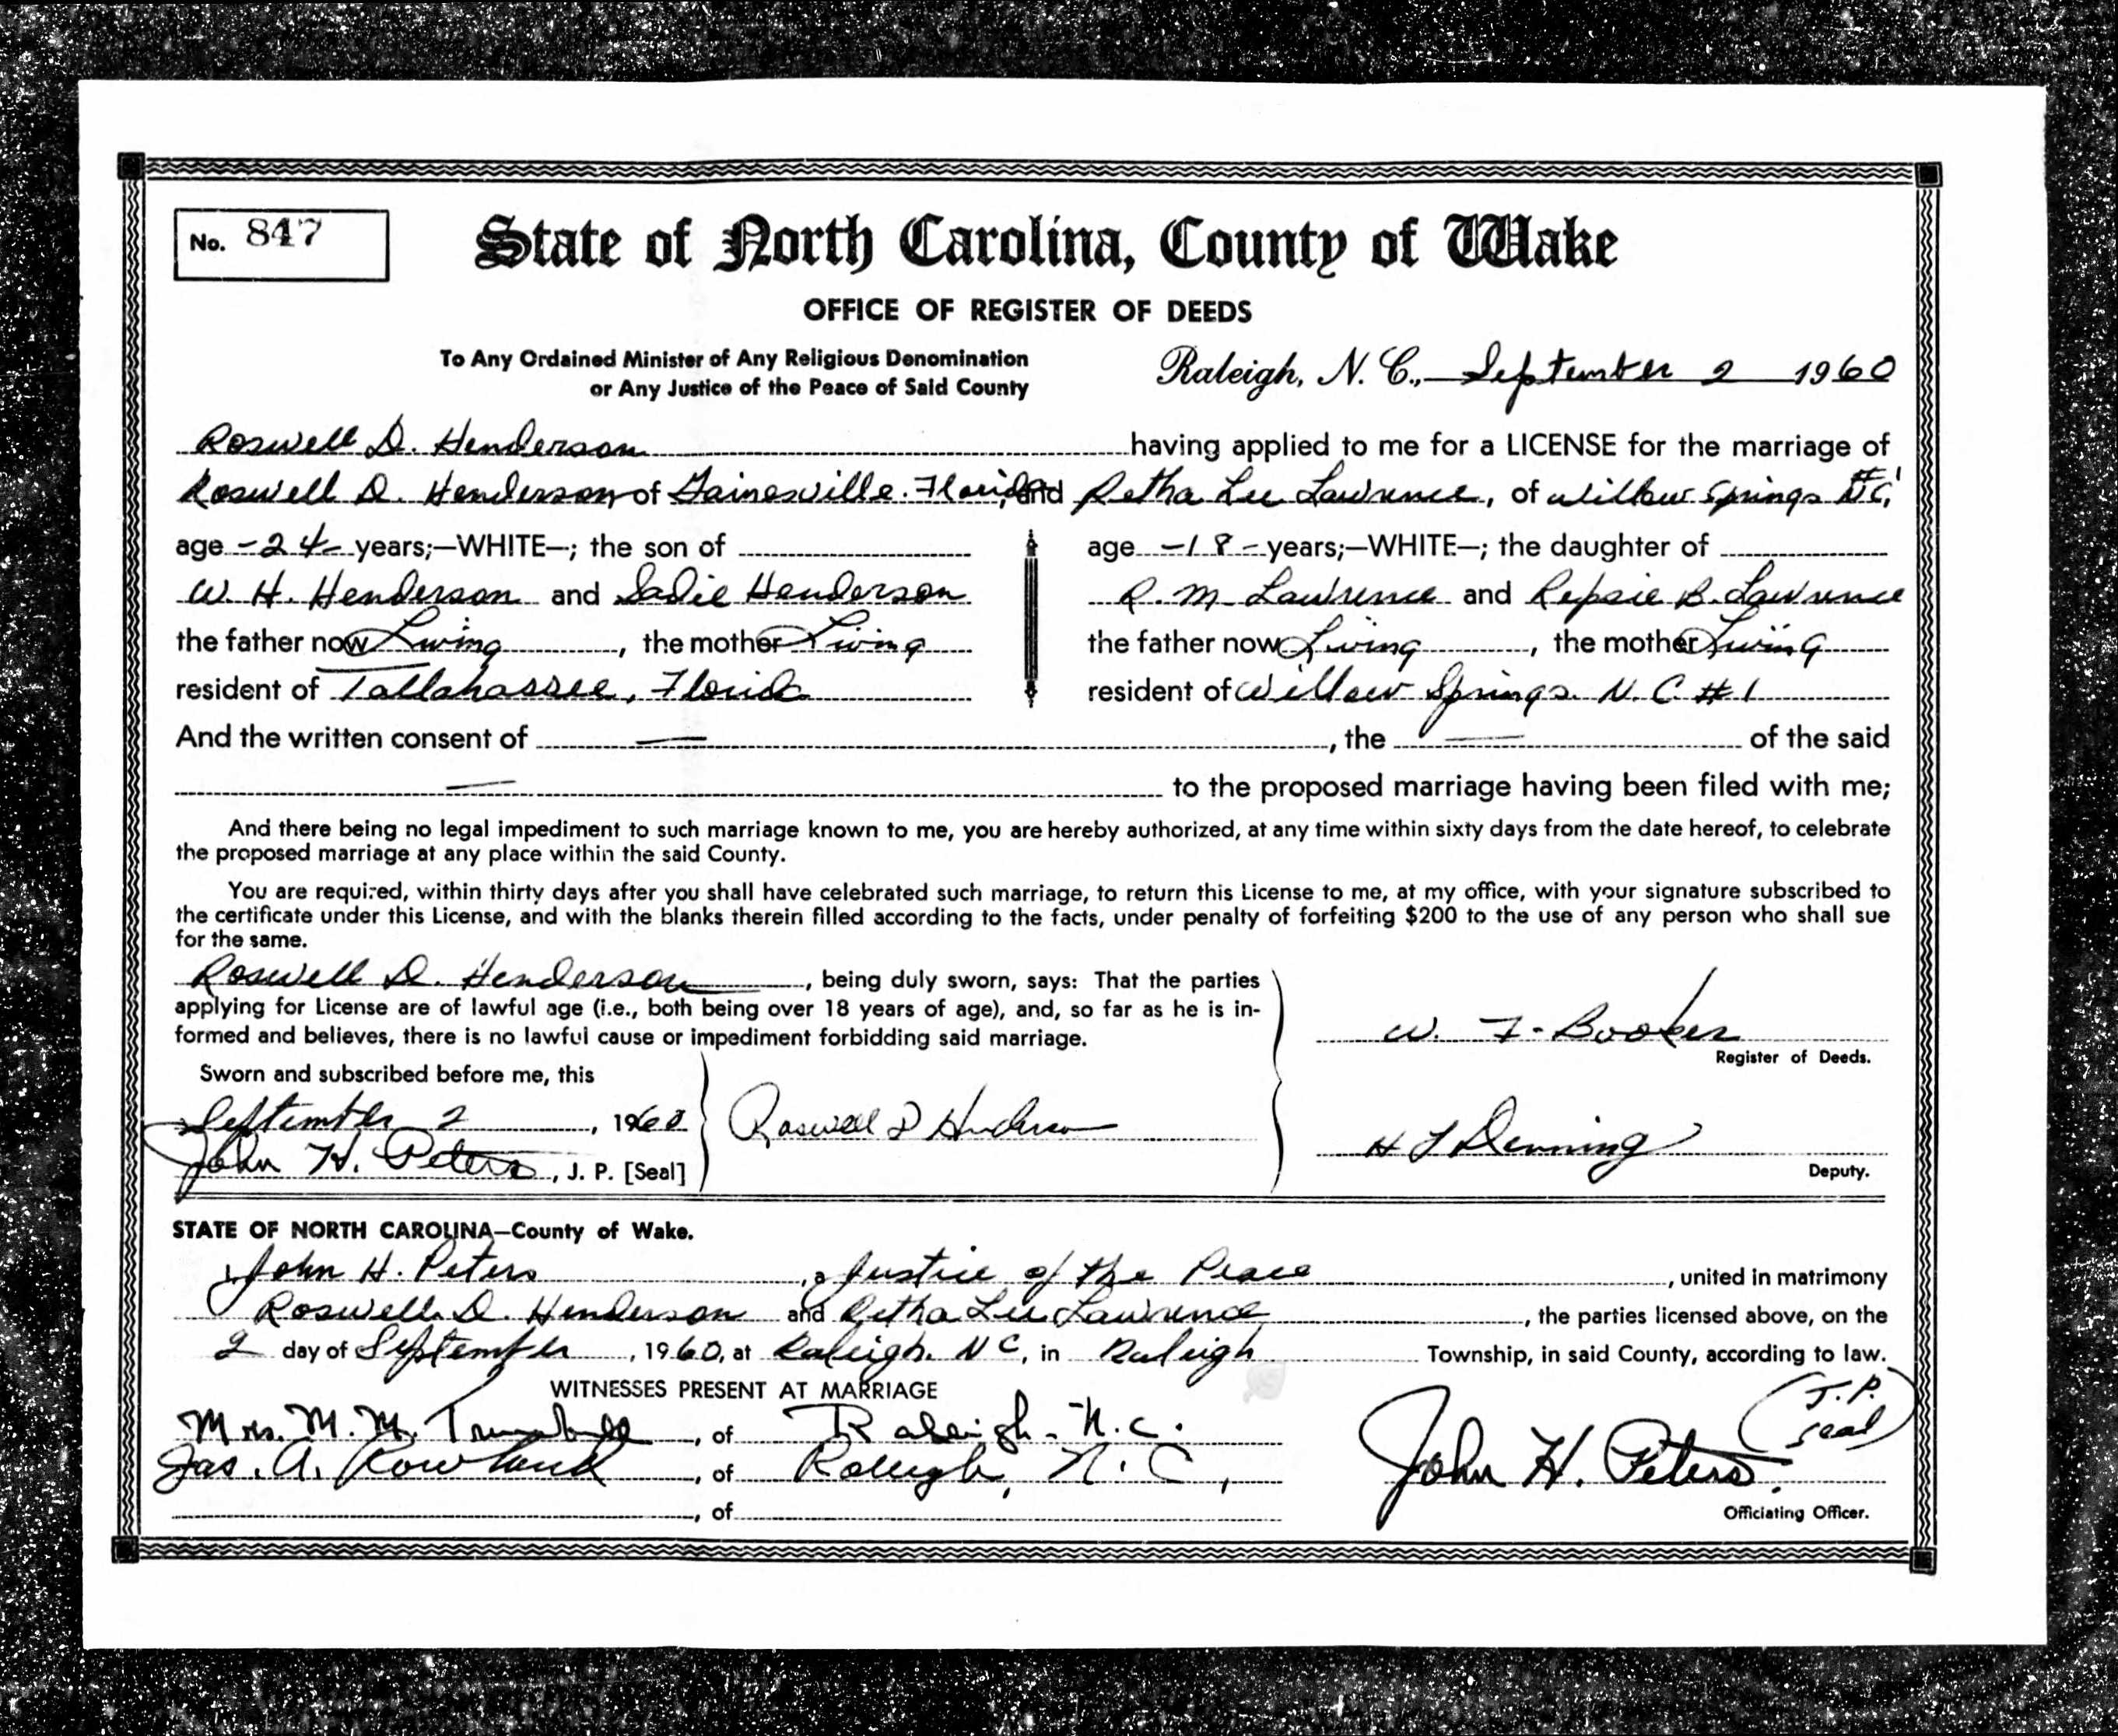 No. 847
State of North Carolina, County of Wake
OFFICE OF REGISTER OF DEEDS
To Any Ordained Minister of Any Religious Denomination
or Any Justice of the Peace of Said County
Raleigh, N. C., September 2 1960
Roswell D. Henderson having applied to me for a LICENSE for the marriage of
Roswell D. Henderson of Gainesville. Florida, and Retha Lee Lawrence, of Willow Springs N.C. #1
age -24- years;—WHITE—; the son of
W. H. Henderson and Sadie Henderson
the father now Living, the mother Living
resident of Tallahassee, Florida
age -18- years;—WHITE—; the daughter of
R. M. Lawrence and Repsie B. Lawrence
the father now Living, the mother Living
resident of Willow Springs. N. C. #1
And the written consent of —, the — of the said
— to the proposed marriage having been filed with me;
And there being no legal impediment to such marriage known to me, you are hereby authorized, at any time within sixty days from the date hereof, to celebrate
the proposed marriage at any place within the said County.
You are required, within thirty days after you shall have celebrated such marriage, to return this License to me, at my office, with your signature subscribed to
the certificate under this License, and with the blanks therein filled according to the facts, under penalty of forfeiting $200 to the use of any person who shall sue
for the same.
Roswell D. Henderson, being duly sworn, says: That the parties
applying for License are of lawful age (i.e., both being over 18 years of age), and, so far as he is in-
formed and believes, there is no lawful cause or impediment forbidding said marriage.
Sworn and subscribed before me, this
September 2, 1960
John H. Peters, J. P. [Seal]
Roswell D Henderson
W. F. Booker
Register of Deeds.
H L Denning
Deputy.
STATE OF NORTH CAROLINA—County of Wake.
I, John H. Peters, a Justice of the Peace, united in matrimony
Roswell D. Henderson and Retha Lee Lawrence, the parties licensed above, on the
2 day of September, 1960, at Raleigh. N C, in Raleigh Township, in said County, according to law.
WITNESSES PRESENT AT MARRIAGE
Mrs. M. M., of Raleigh. N. C.
Jas. A. Rowland, of Raleigh, N. C.,
, of
(J. P. Seal)
John H. Peters.
Officiating Officer.